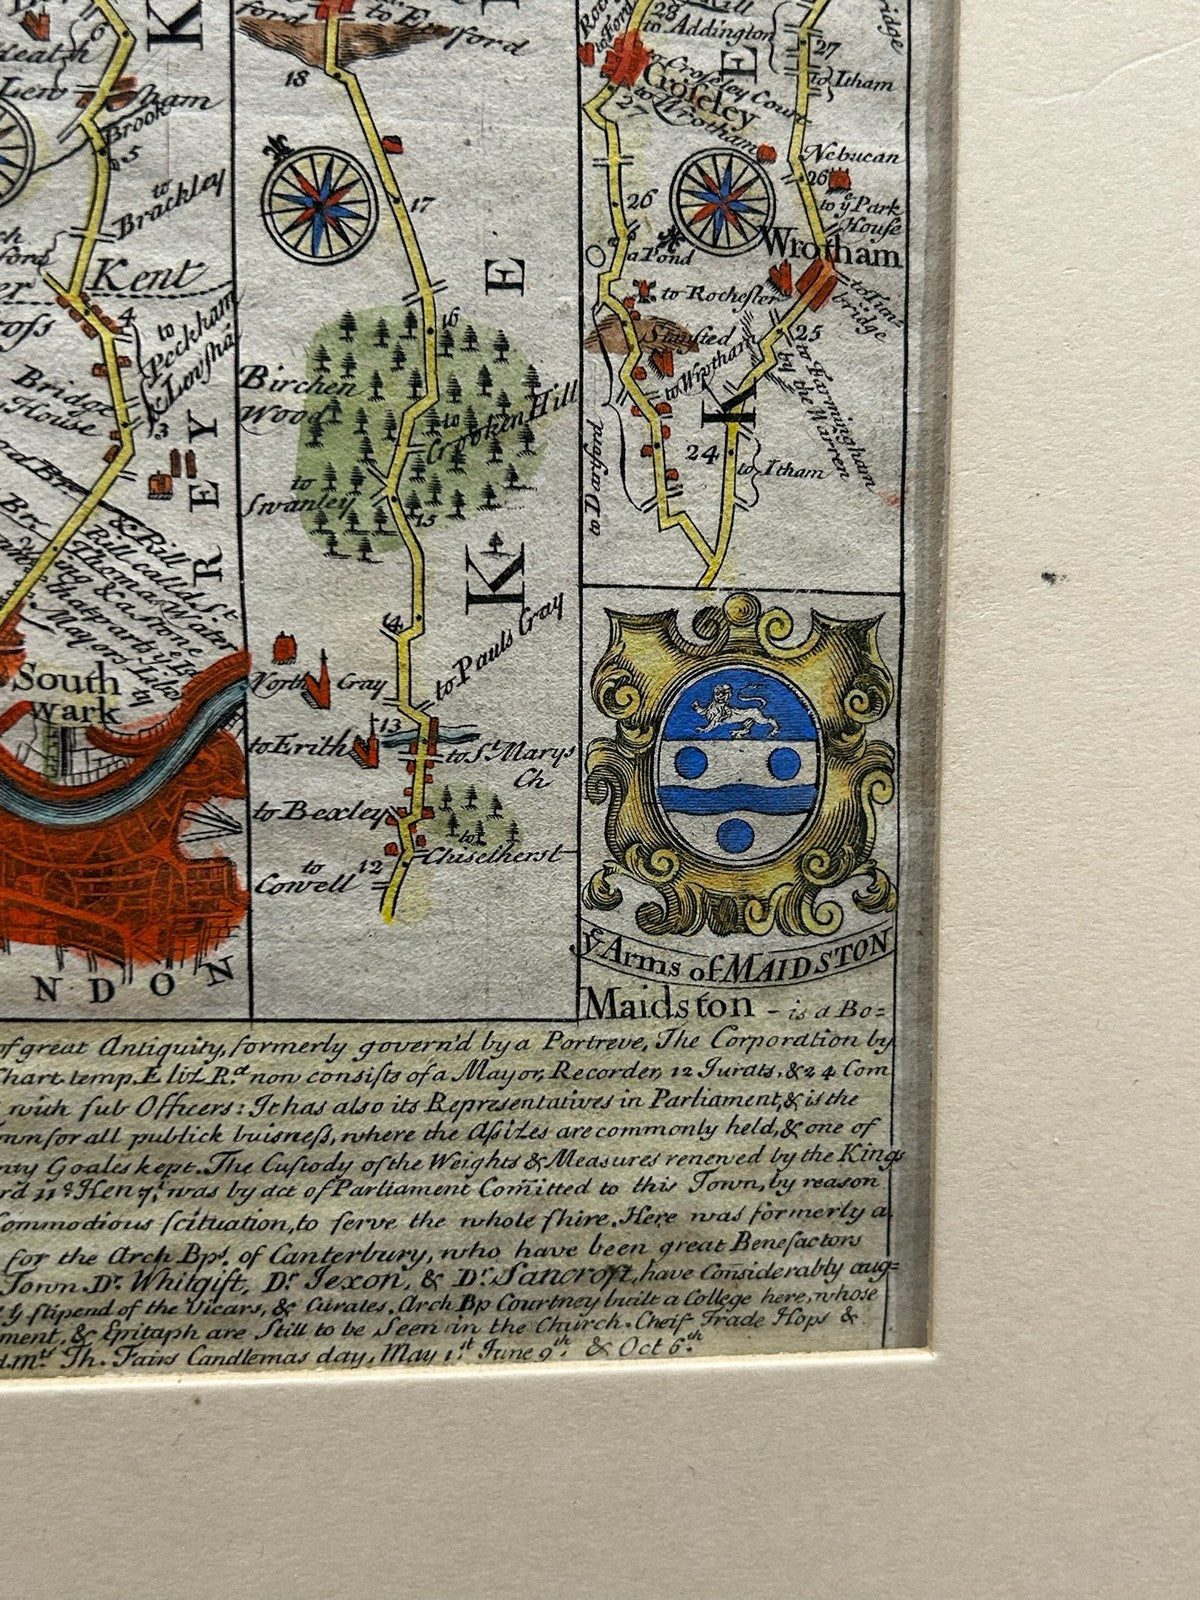 Kent
to
Brackley
4
to
Peckham
& Lewsha
Bridge
House
3
K
R E Y
& Rill
Rill call'd St
Thomas Water
ing & a stone
that parts ye
Mayors Libe
ty
South
wark
N D O N
ford
to Eynsford
18
17
K E
16
Birchen
Wood
to
Crooken Hill
to
Swanley
15
14
to Pauls Gray
North Gray
13
to Erith
to St. Marys
Ch
to Bexley
to
Chiselherst
12
to
Cowell
28
to Addington
to Croseley Court
Croseley
27
to Wrotham
26
a Pond
to Rochester
Stansted
to Wrotham
to Darford
K E
27
to Itham
Nebucan
26
to ye Park
House
Wrotham
to Tun
bridge
25
to Farmingham
by the Warren
24
to Itham
ye Arms of MAIDSTON
Maidston - is a Bo=
of great Antiquity, formerly govern'd by a Portreve, The Corporation by
Chart. temp. Eliz. R.d now consists of a Mayor, Recorder, 12 Jurats, & 24 Com
with sub Officers: It has also its Representatives in Parliament, & is the
for all publick buisness, where the Assizes are commonly held, & one of
nty Goales kept. The Custody of the Weights & Measures renewed by the Kings
Hen 7.t was by act of Parliament Comitted to this Town, by reason
Commodious scituation, to serve the whole shire. Here was formerly a
for the Arch Bps. of Canterbury, who have been great Benefactors
Town. Dr. Whitgift, Dr. Jexon, & Dr. Sancroft, have Considerably aug=
ye stipend of the Vicars, & Curates. Arch Bp Courtney built a College here, whose
ment, & Epitaph are Still to be Seen in the Church. Cheif Trade Hops &
Th. Fairs Candlemas day, May 1.st June 9.th & Oct 6.th